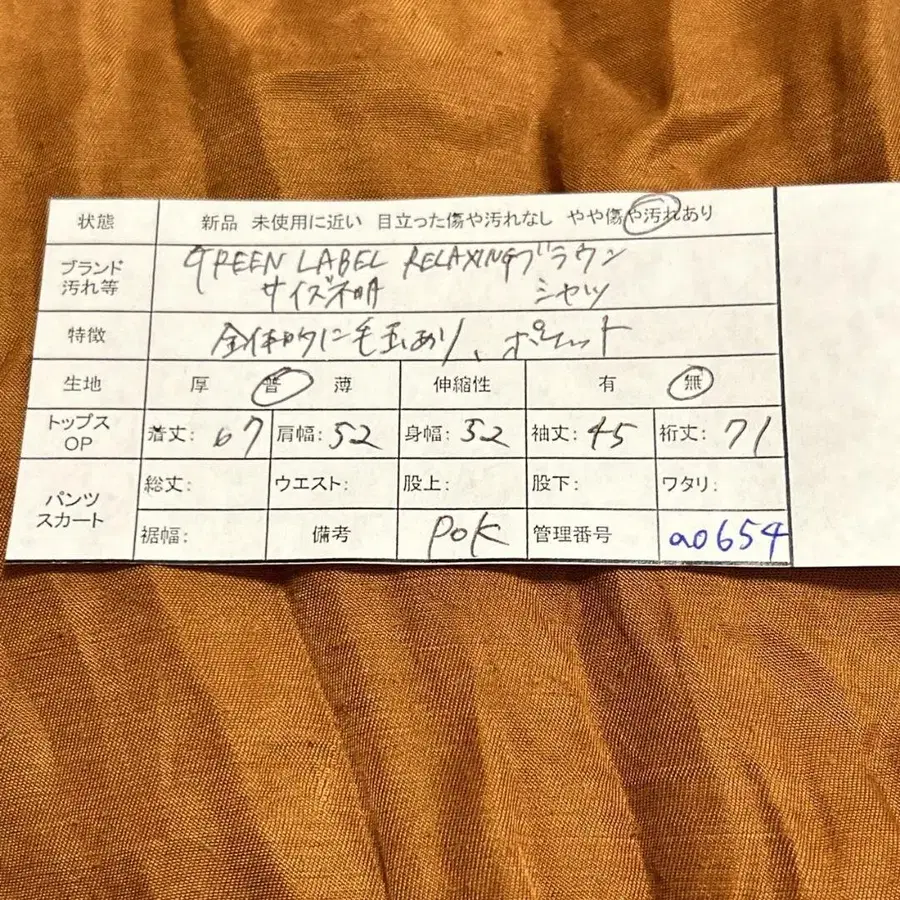 状態 新品 未使用に近い 目立った傷や汚れなし やや傷や汚れあり
ブランド 汚れ等 GREEN LABEL RELAXING ブラウン
サイズ不明 シャツ
特徴 全体的に毛玉あり、ポケット
生地 厚 普 薄 伸縮性 有 無
トップス OP 着丈: 67 肩幅: 52 身幅: 52 袖丈: 45 裄丈: 71
パンツ スカート 総丈: ウエスト: 股上: 股下: ワタリ:
裾幅: 備考 POK 管理番号 a0654